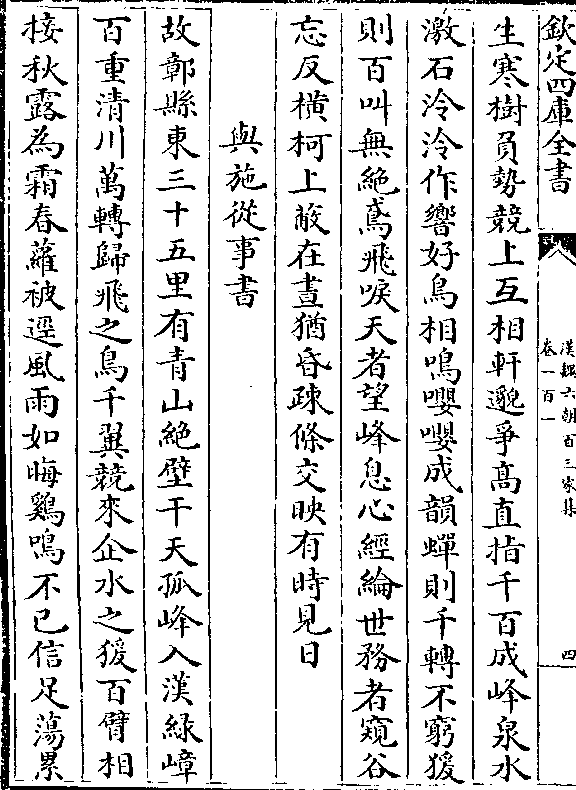 欽定四庫全書
漢魏六朝百三家集
卷一百一
四
生寒樹負勢競上互相軒邈爭高直指千百成峰泉水
激石泠泠作響好鳥相鳴嚶嚶成韻蟬則千轉不窮猨
則百叫無絶鳶飛唳天者望峰息心經綸世務者窺谷
忘反橫柯上蔽在晝猶昏疎條交映有時見日
與施從事書
故鄣縣東三十五里有青山絶壁干天孤峰入漢綠嶂
百重清川萬轉歸飛之鳥千翼競來企水之猨百臂相
接秋露為霜春蘿被逕風雨如晦鷄鳴不已信足蕩累